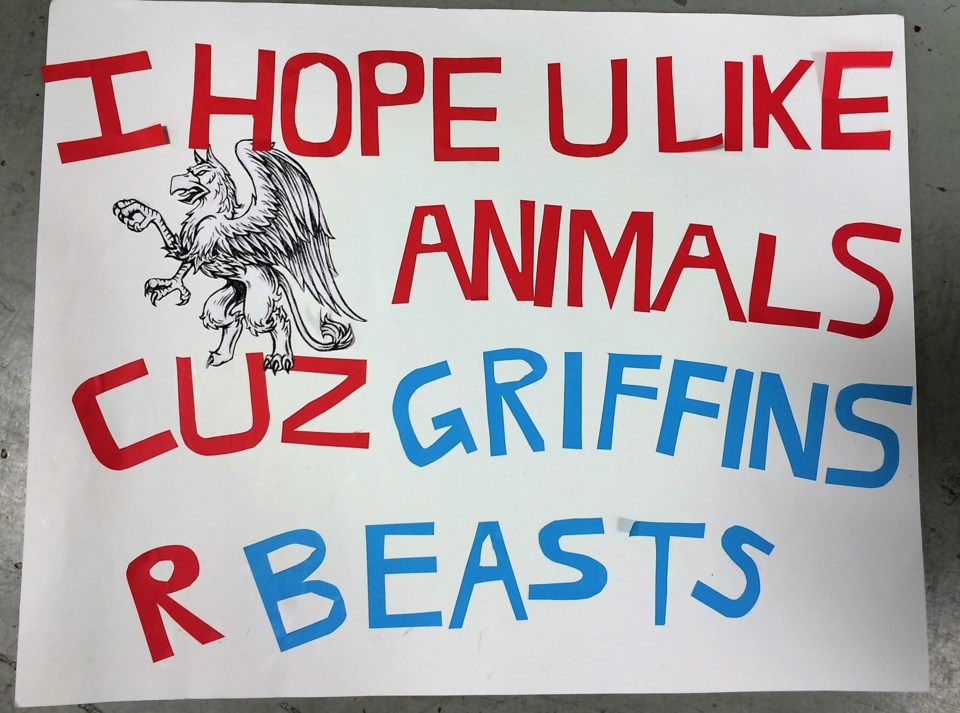 I HOPE U LIKE
ANIMALS
CUZ GRIFFINS
R BEASTS